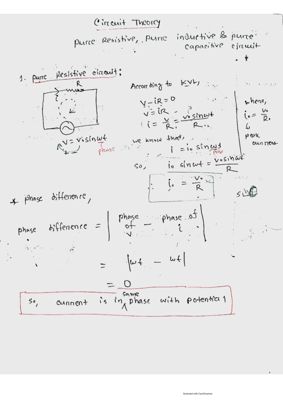 Circuit Theory
Pure Resistive, Pure inductive & pure
capacitive circuit
1. Pure Resistive circuit:
R
According to KVL,
V - iR = 0
V = iR
i = V/R = v₀sinωt/R
where,
i₀ = v₀/R
peak
current
V = v₀sinωt
phase
we know that,
i = i₀ sinωt
so, i₀ sinωt = v₀sinωt/R
i₀ = v₀/R
* phase difference,
phase difference = | phase of v - phase of i |
= |ωt - ωt|
= 0
same
So, current is in ^ phase with potential
Scanned with CamScanner